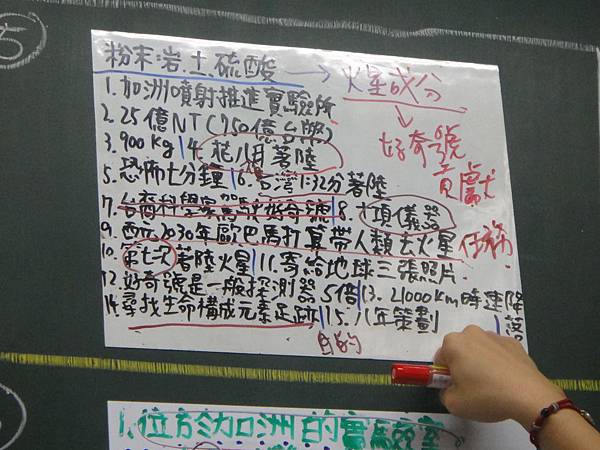 5
粉末岩土硫酸 → 火星成分
好奇號
貢獻
1.加洲噴射推進實驗所
2.25億NT(750億台幣)
3.900kg 4.花八月著陸
5.恐怖七分鐘 6.台灣1:32分著陸
7.台裔科學家駕駛好奇號 8.十項儀器
9.西元2030年歐巴馬打算帶人類去火星 任務
10.第七次著陸火星 11.寄給地球三張照片.
12.好奇號是一般探測器5倍 13.21000km時速降落
14.尋找生命構成元素足跡 15.八年策劃
目的
1.位於加洲的實驗室